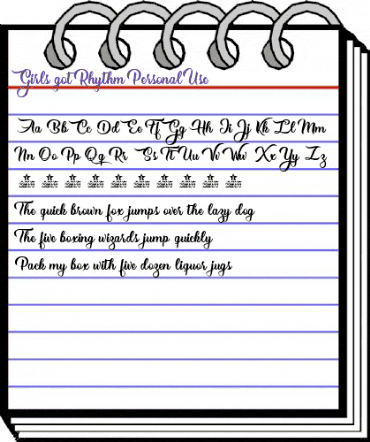 Girls got Rhythm Personal Use
Aa Bb Cc Dd Ee Ff Gg Hh Ii Jj Kk Ll Mm
Nn Oo Pp Qq Rr Ss Tt Uu Vv Ww Xx Yy Zz
The quick brown fox jumps over the lazy dog
The five boxing wizards jump quickly
Pack my box with five dozen liquor jugs